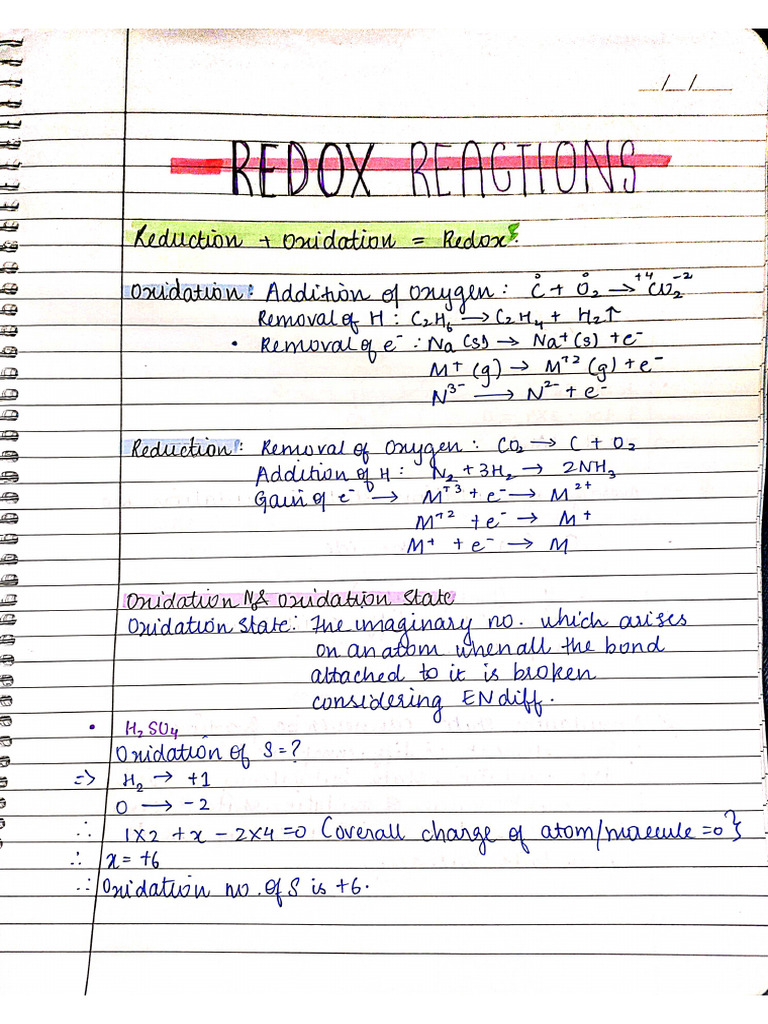 _/_/_
REDOX REACTIONS
Reduction + Oxidation = Redox.
Oxidation: Addition of Oxygen: C⁰ + O₂⁰ → ⁺⁴CO₂⁻²
Removal of H: C₂H₆ → C₂H₄ + H₂↑
• Removal of e⁻: Na (s) → Na⁺(s) + e⁻
M⁺ (g) → M⁺² (g) + e⁻
N³⁻ → N²⁻ + e⁻
Reduction: Removal of Oxygen: CO₂ → C + O₂
Addition of H: N₂ + 3H₂ → 2NH₃
Gain of e⁻ → M⁺³ + e⁻ → M²⁺
M⁺² + e⁻ → M⁺
M⁺ + e⁻ → M
Oxidation N⁰& Oxidation State
Oxidation State: The imaginary no. which arises
on an atom when all the bond
attached to it is broken
considering EN diff.
• H₂SO₄
Oxidation of S=?
=> H₂ → +1
O → -2
∴ 1×2 + x - 2×4 = 0 (overall charge of atom/molecule = 0}
∴ x = +6
∴ Oxidation no. of S is +6.